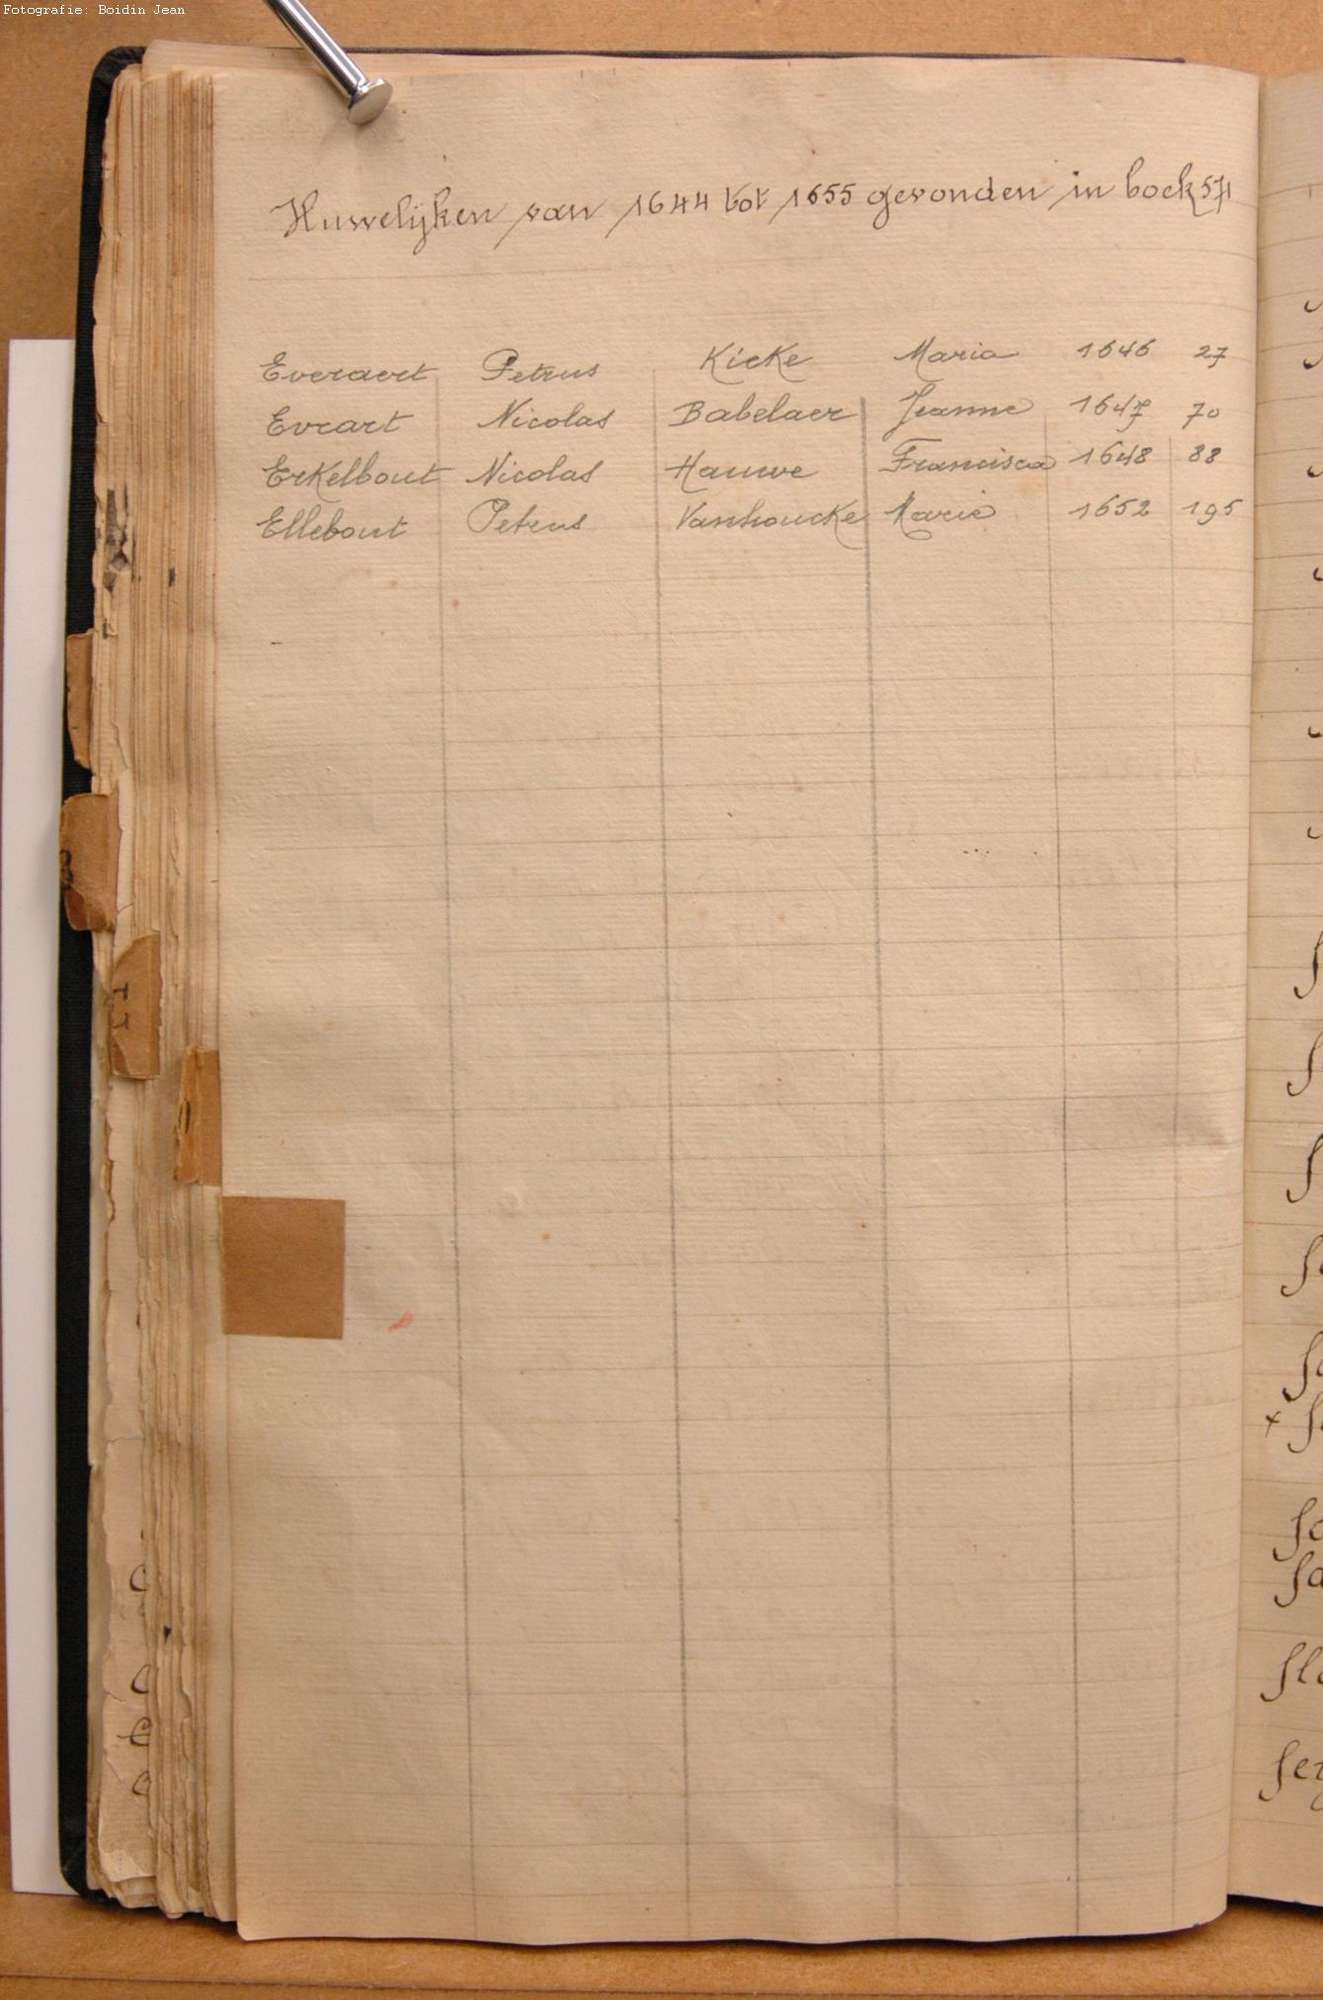 Fotografie: Boidin Jean
Huwelijken van 1644 tot 1655 gevonden in boek 571
Everaert Petrus Kieke Maria 1646 27
Evrart Nicolas Babelaer Jeanne 1647 70
Erkelbout Nicolas Hauwe Francisca 1648 88
Ellebout Petrus Vanhoucke Marie 1652 195